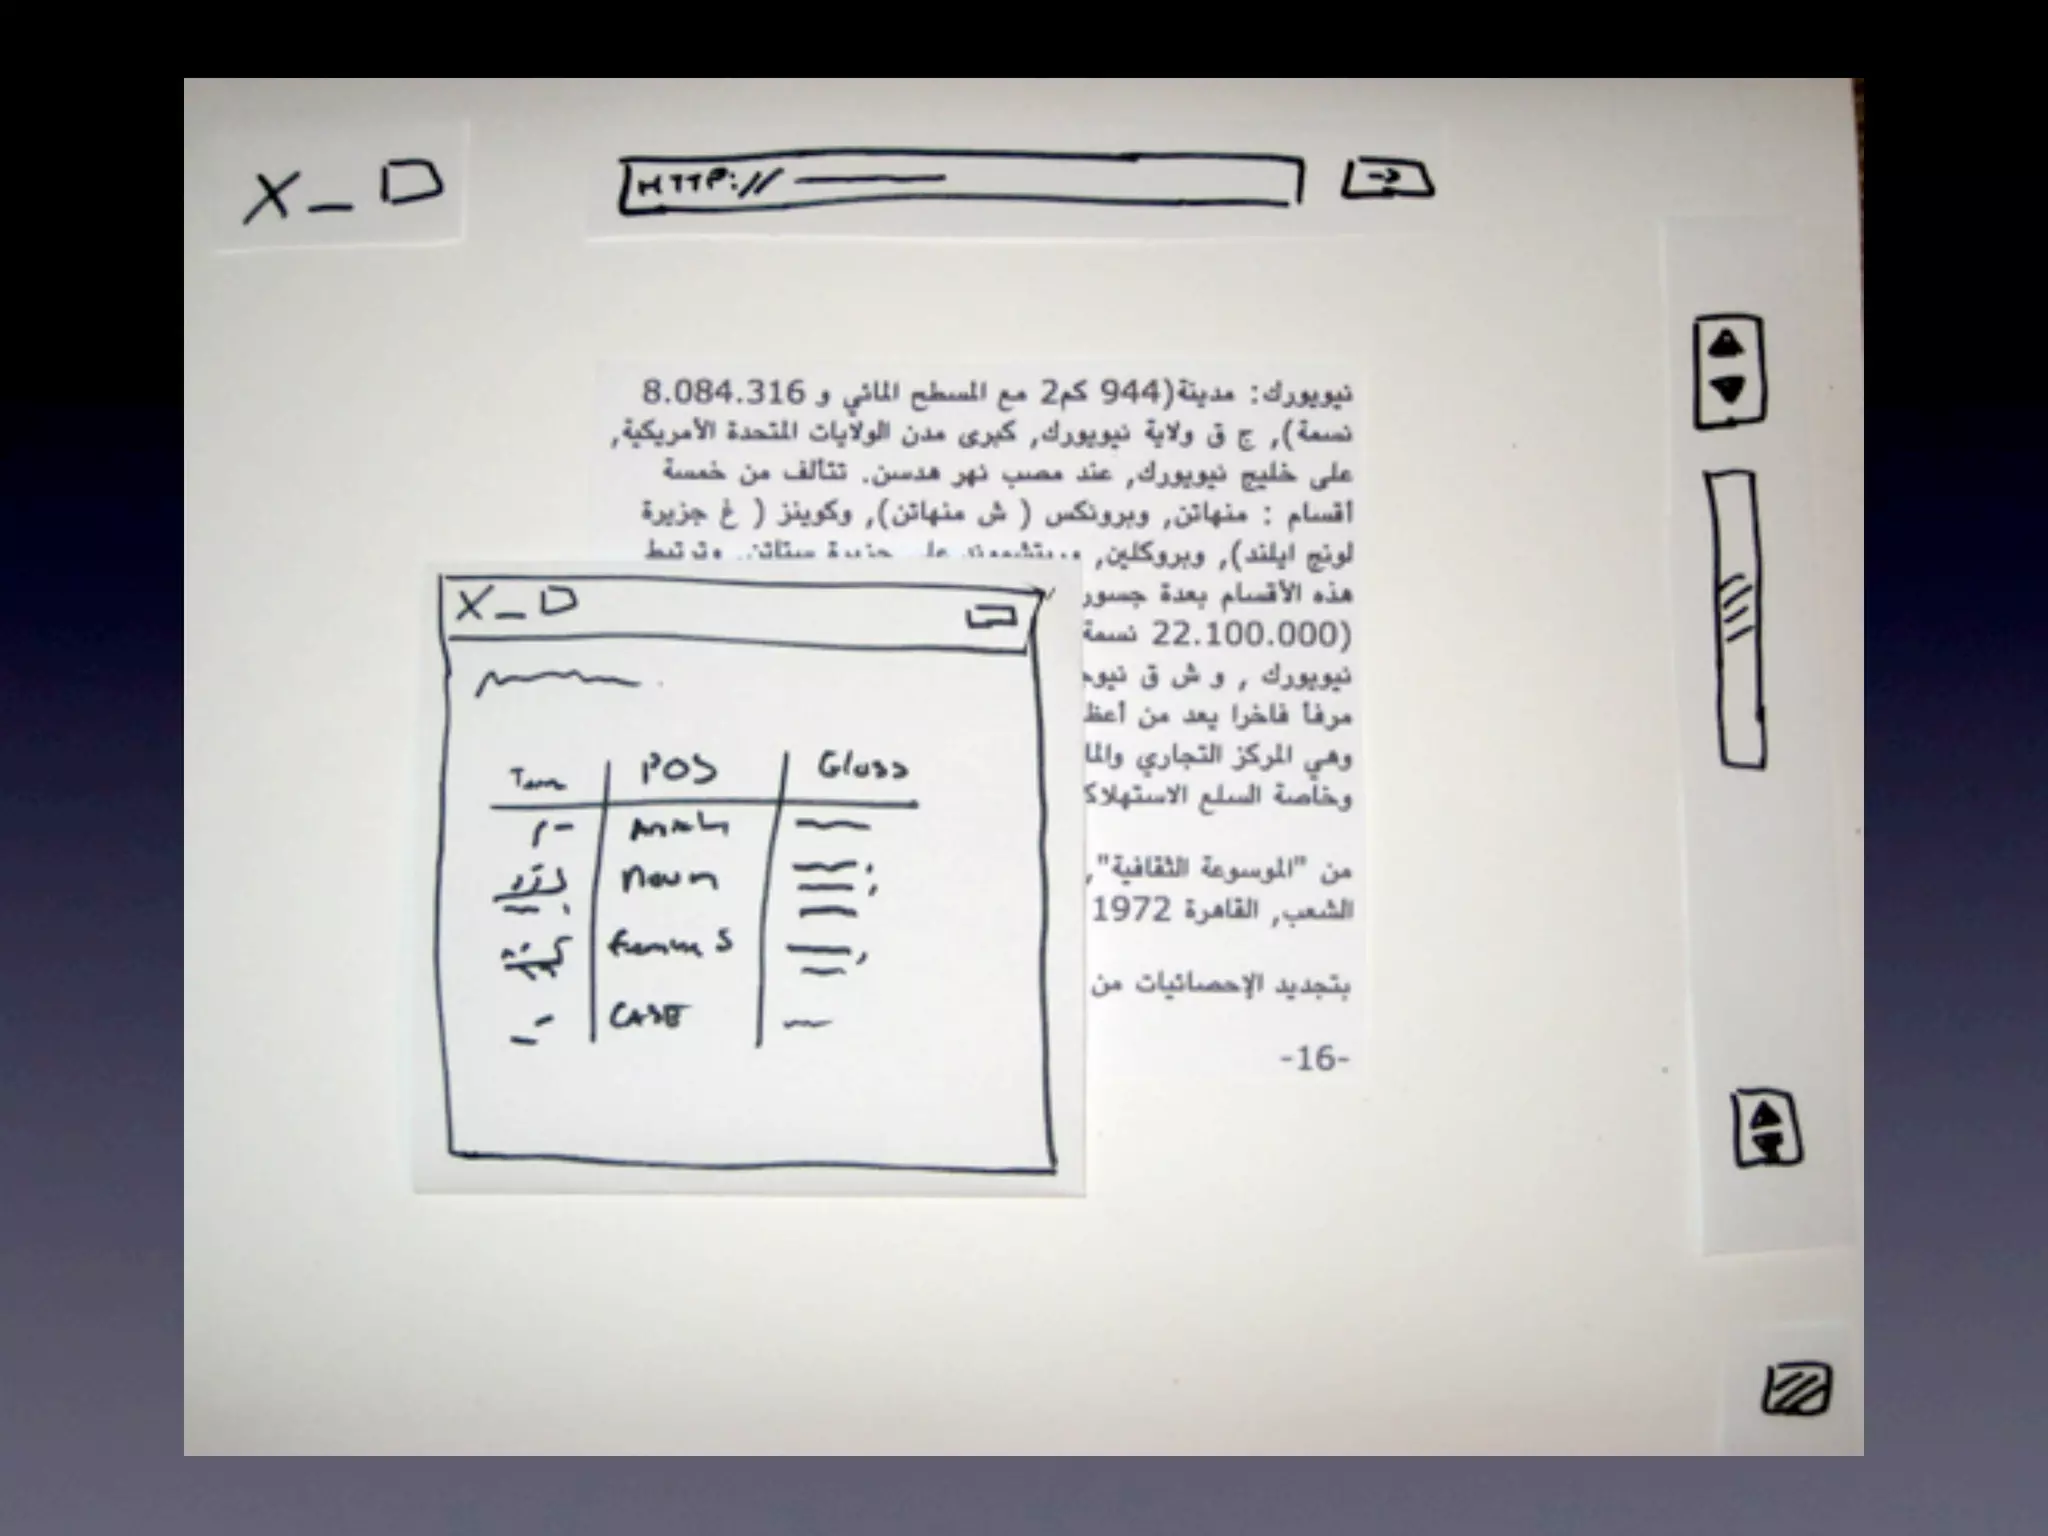 X _ □
HTTP://
نيويورك: مدينة(944 كم2 مع المسطح المائي و 8.084.316
نسمة), ج ق ولاية نيويورك, كبرى مدن الولايات المتحدة الأمريكية,
على خليج نيويورك, عند مصب نهر هدسن. تتألف من خمسة
أقسام : منهاتن, وبرونكس ( ش منهاتن), وكوينز ( غ جزيرة
لونج ايلند), وبروكلين, وريتشموند على جزيرة ستاتن. وترتبط
هذه الأقسام بعدة جسور
(22.100.000 نسمة
نيويورك , و ش ق
مرفأ فاخرا يعد من
وهي المركز التجاري
وخاصة السلع
من "الموسوعة الثقافية",
الشعب, القاهرة 1972
بتجديد الإحصائيات من
-16-
X _ □
POS Gloss
Noun
CASE